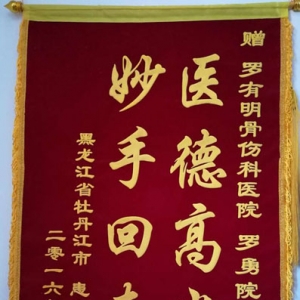 赠 罗有明骨伤科医院 罗勇院
医德高
妙手回
黑龙江省牡丹江市 患
二零一六